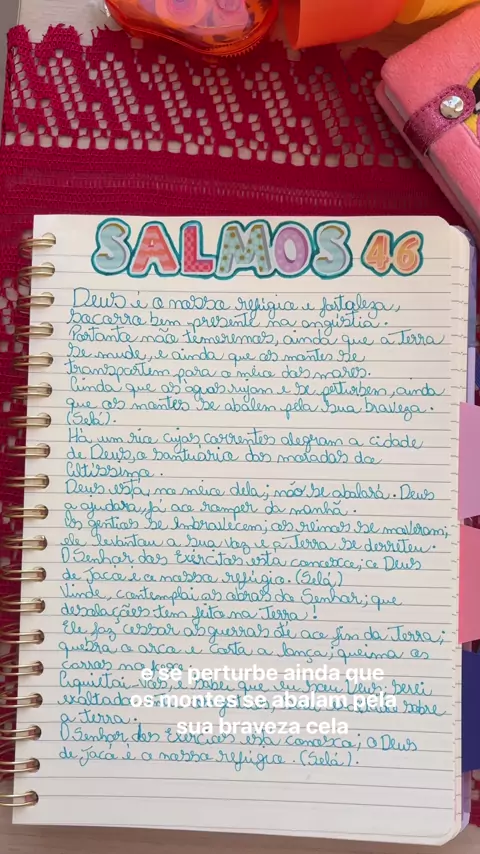 SALMOS 46
Deus é o nosso refúgio e fortaleza,
socorro bem presente na angústia.
Portanto não temeremos, ainda que a terra
se mude, e ainda que os montes se
transportem para o meio dos mares.
Ainda que as águas rujam e se perturbem, ainda
que os montes se abalem pela sua braveza.
(Selá).
Há um rio cujas correntes alegram a cidade
de Deus, o santuário das moradas do
Altíssimo.
Deus está no meio dela; não se abalará. Deus
a ajudará, já ao romper da manhã.
Os gentios se embraveceram; os reinos se moveram;
ele levantou a sua voz e a terra se derreteu.
O Senhor dos Exércitos está conosco; o Deus
de Jacó é o nosso refúgio. (Selá.)
Vinde, contemplai as obras do Senhor; que
desolações tem feito na terra!
Ele faz cessar as guerras até ao fim da terra;
quebra o arco e corta a lança; queima os
carros no
Aquietai-vos, e sabei que eu sou Deus; serei
exaltado sobre
a terra.
O Senhor dos Exércios está conosco; o Deus
de Jacó é o nosso refúgio. (Selá).
e se perturbe ainda que
os montes se abalam pela
sua braveza cela